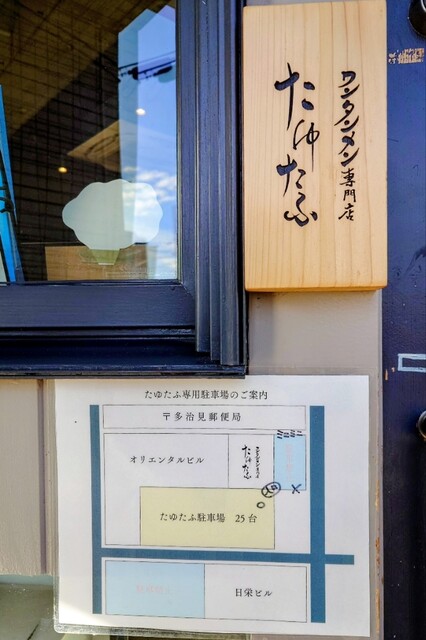 ワンタンメン専門店
たゆたふ
たゆたふ専用駐車場のご案内
〒多治見郵便局
オリエンタルビル
たゆたふ
たゆたふ駐車場 25台
日栄ビル